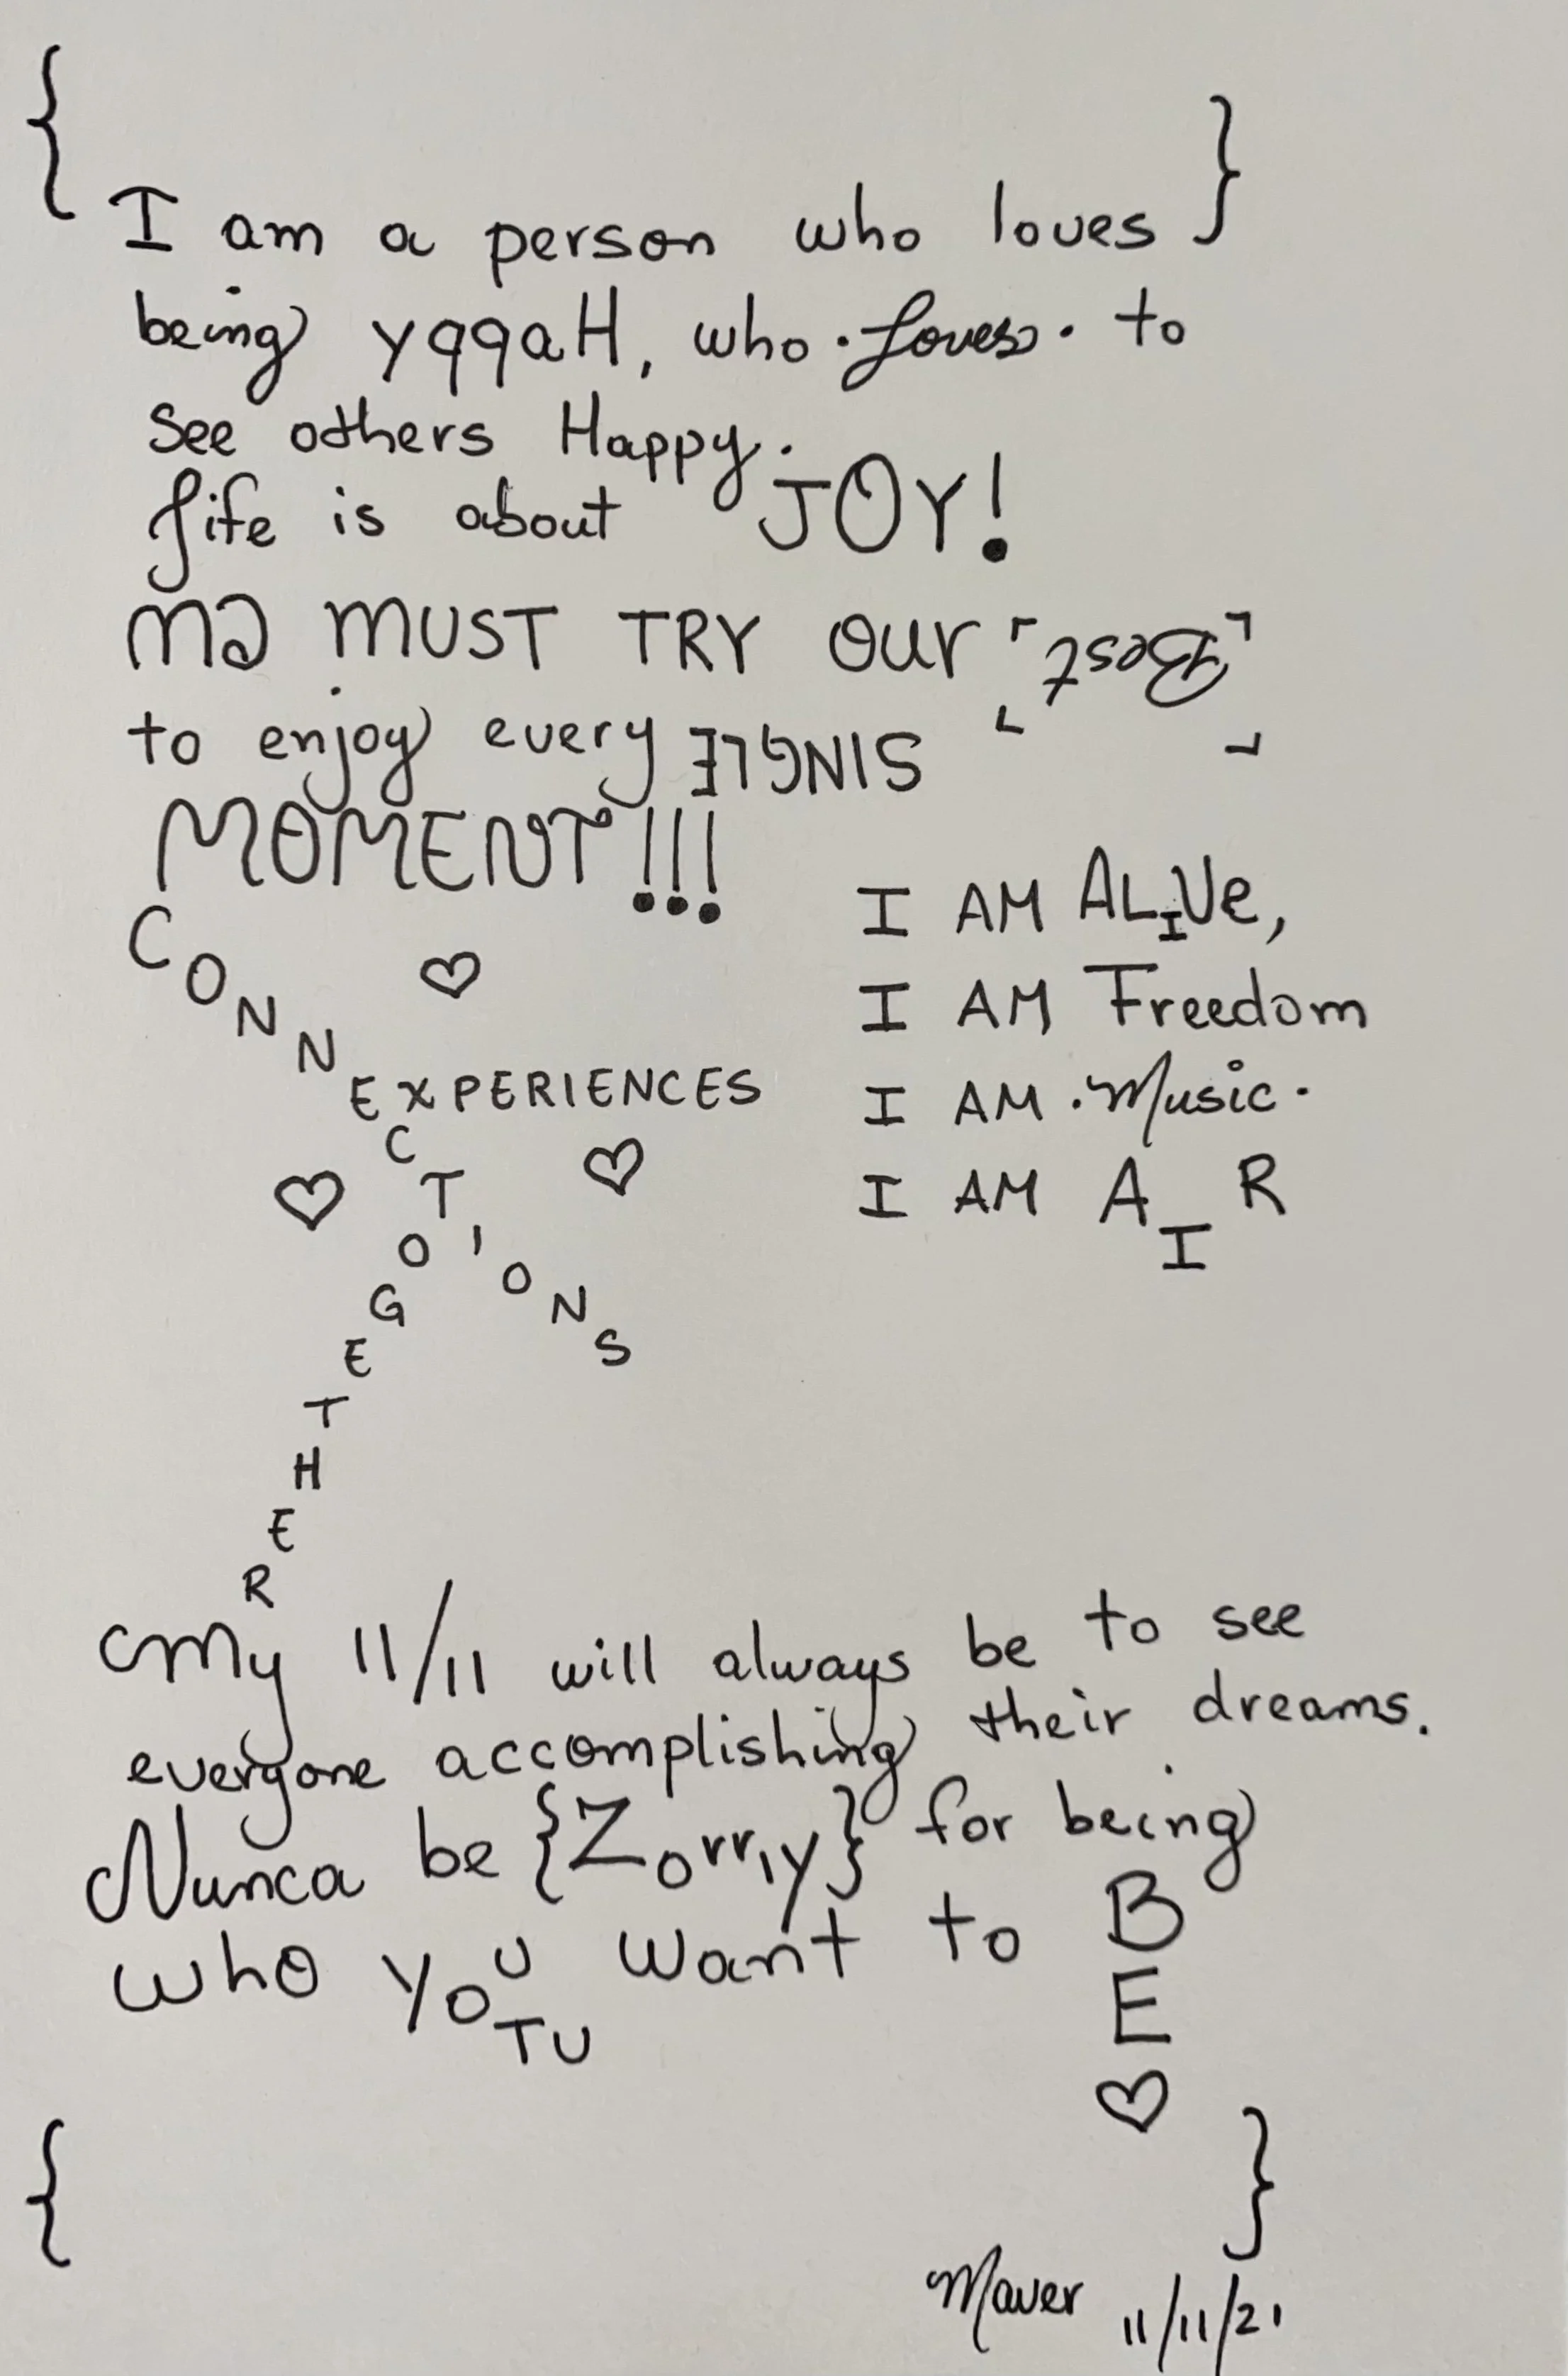 { }
I am a person who loves
being yqqaH, who · Loves · to
see others Happy.
Life is about JOY!
WE MUST TRY our "Best"
to enjoy every SINGLE
MOMENT!!!
CONNECTIONS
EXPERIENCES
TOGETHER
I AM ALIVe,
I AM Freedom
I AM · Music ·
I AM AIR
My 11/11 will always be to see
everyone accomplishing their dreams.
Nunca be {Zorriy} for being
who YOU want to BE
TU
{ }
Maver 11/11/21